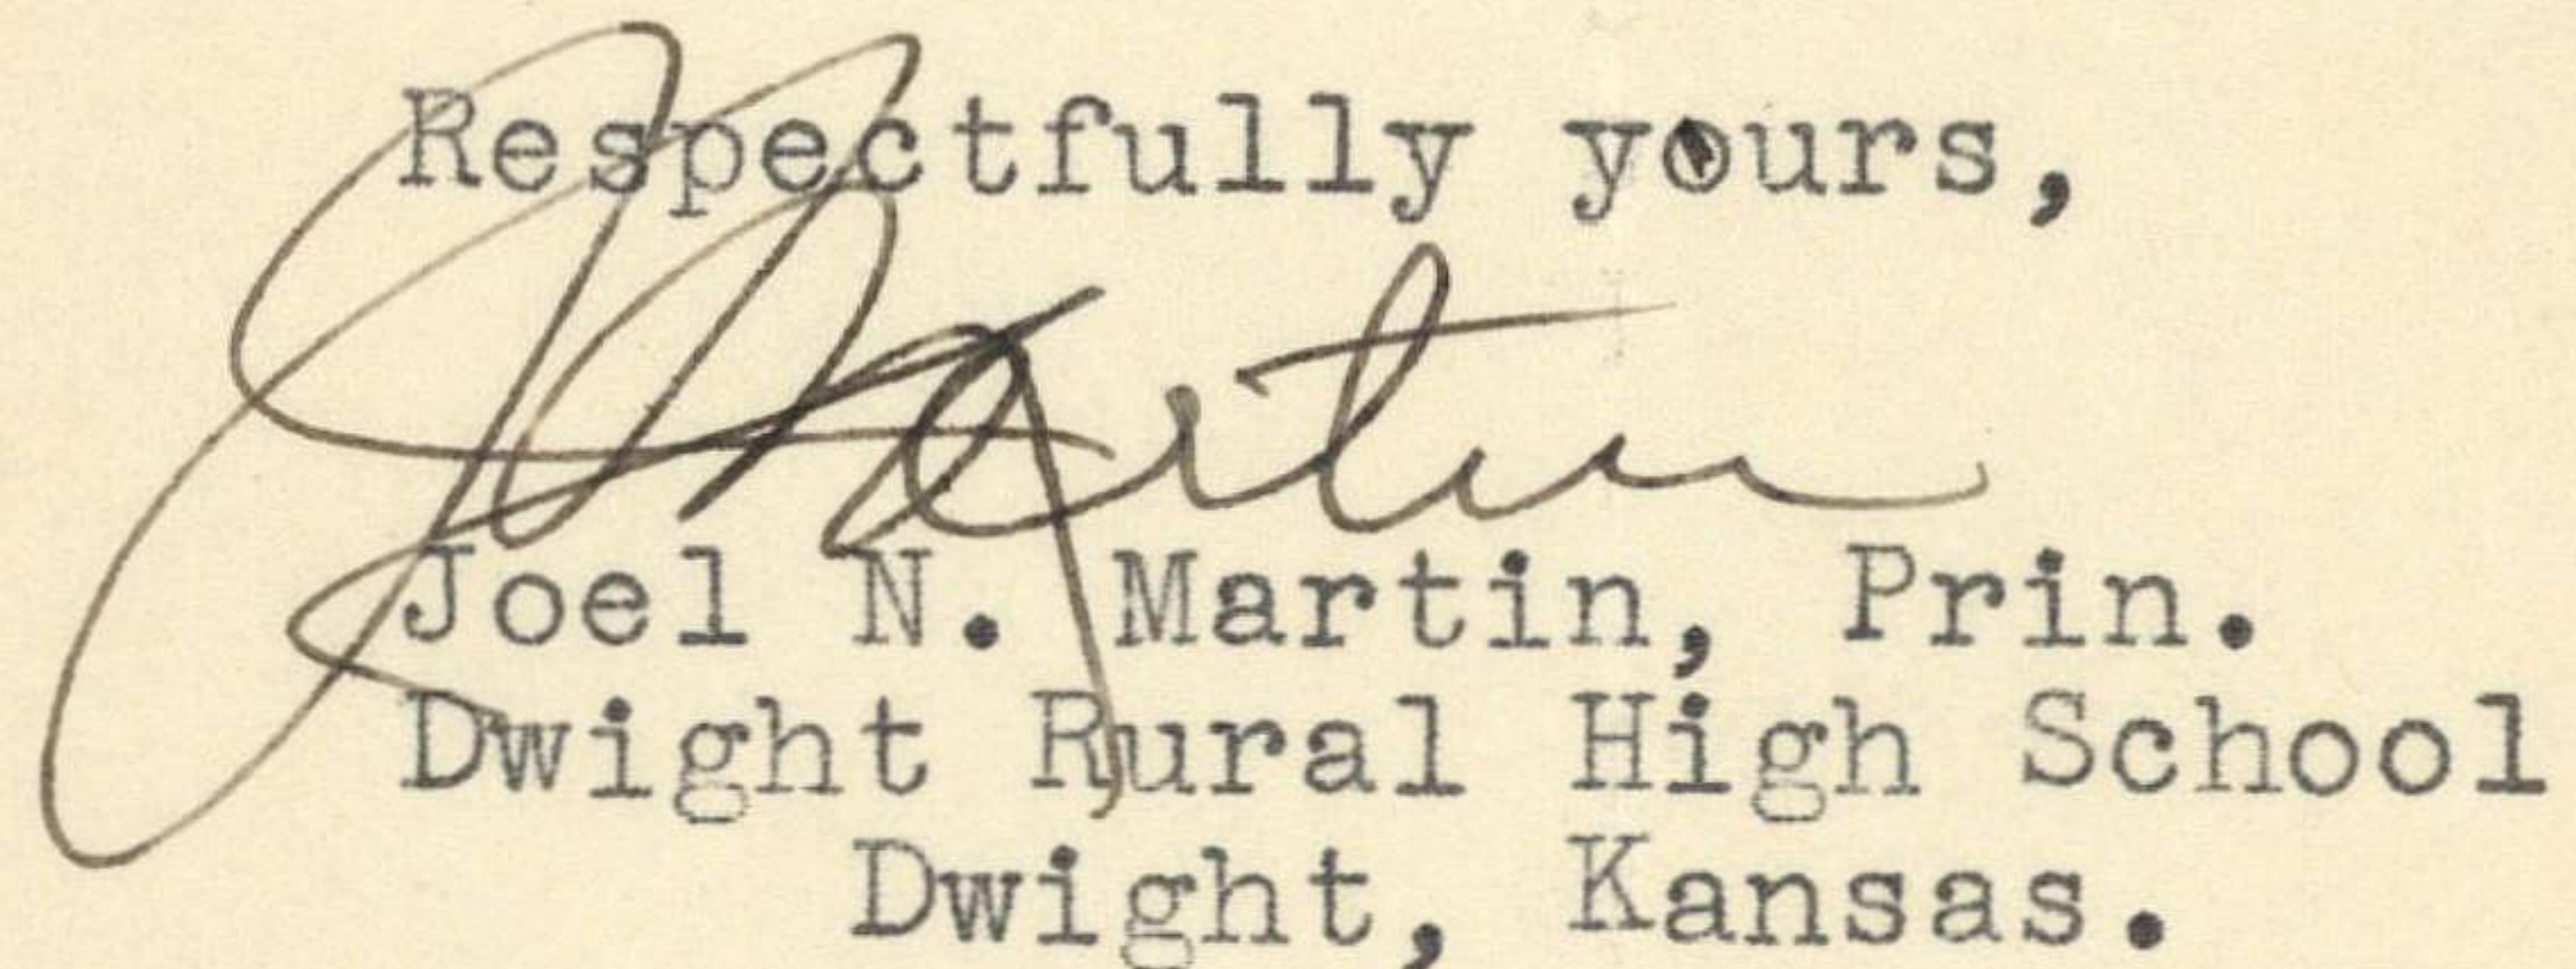 Respectfully yours,
JNMartin
Joel N. Martin, Prin.
Dwight Rural High School
Dwight, Kansas.